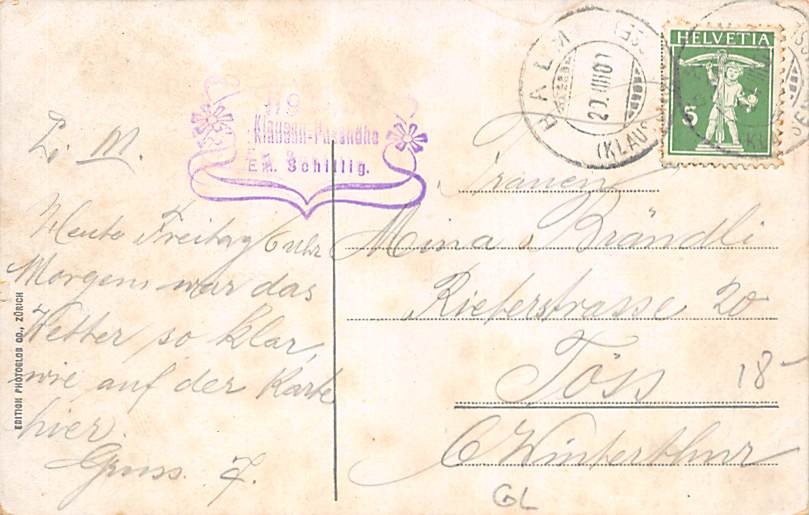 L. M.
Heute Freitag 6 Uhr
Morgens war das
Wetter so klar,
wie auf der Karte
hier.
Gruss. F.
EDITION PHOTOGLOB CO., ZÜRICH
Klausen-Passhöhe
Em. Schillig.
BALM
(KLAUS
HELVETIA
5
Frauen
Mina Brändli
Rieterstrasse 20
Töss
Winterthur
18-
GL